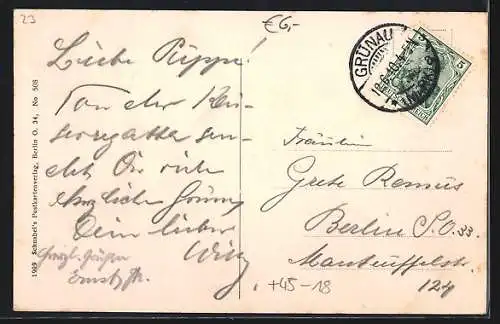 23
€6,-
Liebe Puppe!
Von der Kai-
serregatta sen-
det Dir viele
herzliche Grüsse
Dein lieber
Willy
Herzl. Grüßen
1909 Schnabel's Postkartenverlag, Berlin O. 34, No 508
GRÜNAU
(Mark)
5
Fräulein
Grete Remus
Berlin S.O. 33.
Manteuffelstr.
124
+45-18